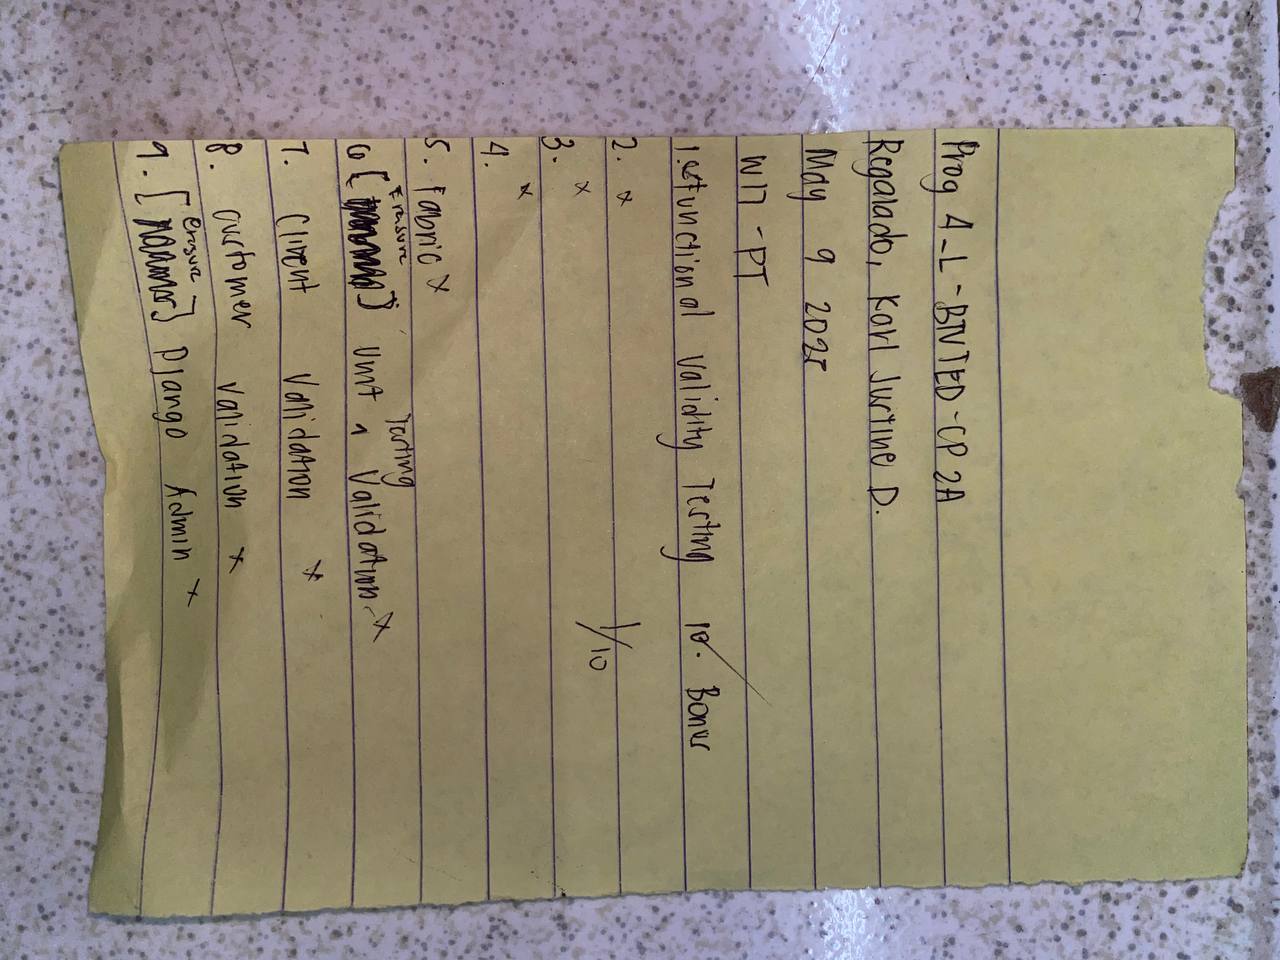 Prog 4-L-BTVTED-CP 2A
Regalado, Karl Justine D.
May 9 2025
W17 - PT
1. Functional Validity Testing 10. Bonus
2. x
3. x 1/10
4. x
5. Fabric x
Erasure Testing
6 [ ] Unit ^ Validation x
7. Client Validation x
8. customer validation x
erasure
9. [ ] Django Admin x